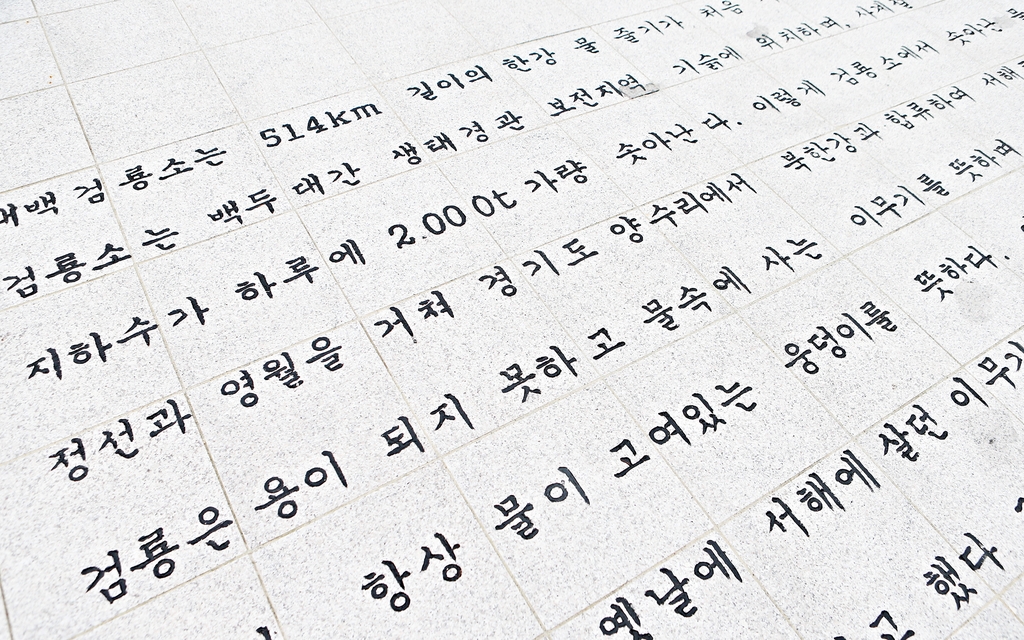 태백 검룡소는 514km 길이의 한강 물 줄기가 처음
검룡소는 백두대간 생태경관 보전지역 기슭에 위치하며, 사계절
지하수가 하루에 2.000t 가량 솟아난다. 이렇게 검룡소에서 솟아난 물
정선과 영월을 거쳐 경기도 양수리에서 북한강과 합류하여 서해
검룡은 용이 되지 못하고 물속에 사는 이무기를 뜻하며
항상 물이 고여있는 웅덩이를 뜻하다.
옛날에 서해에 살던 이무기
고 했다